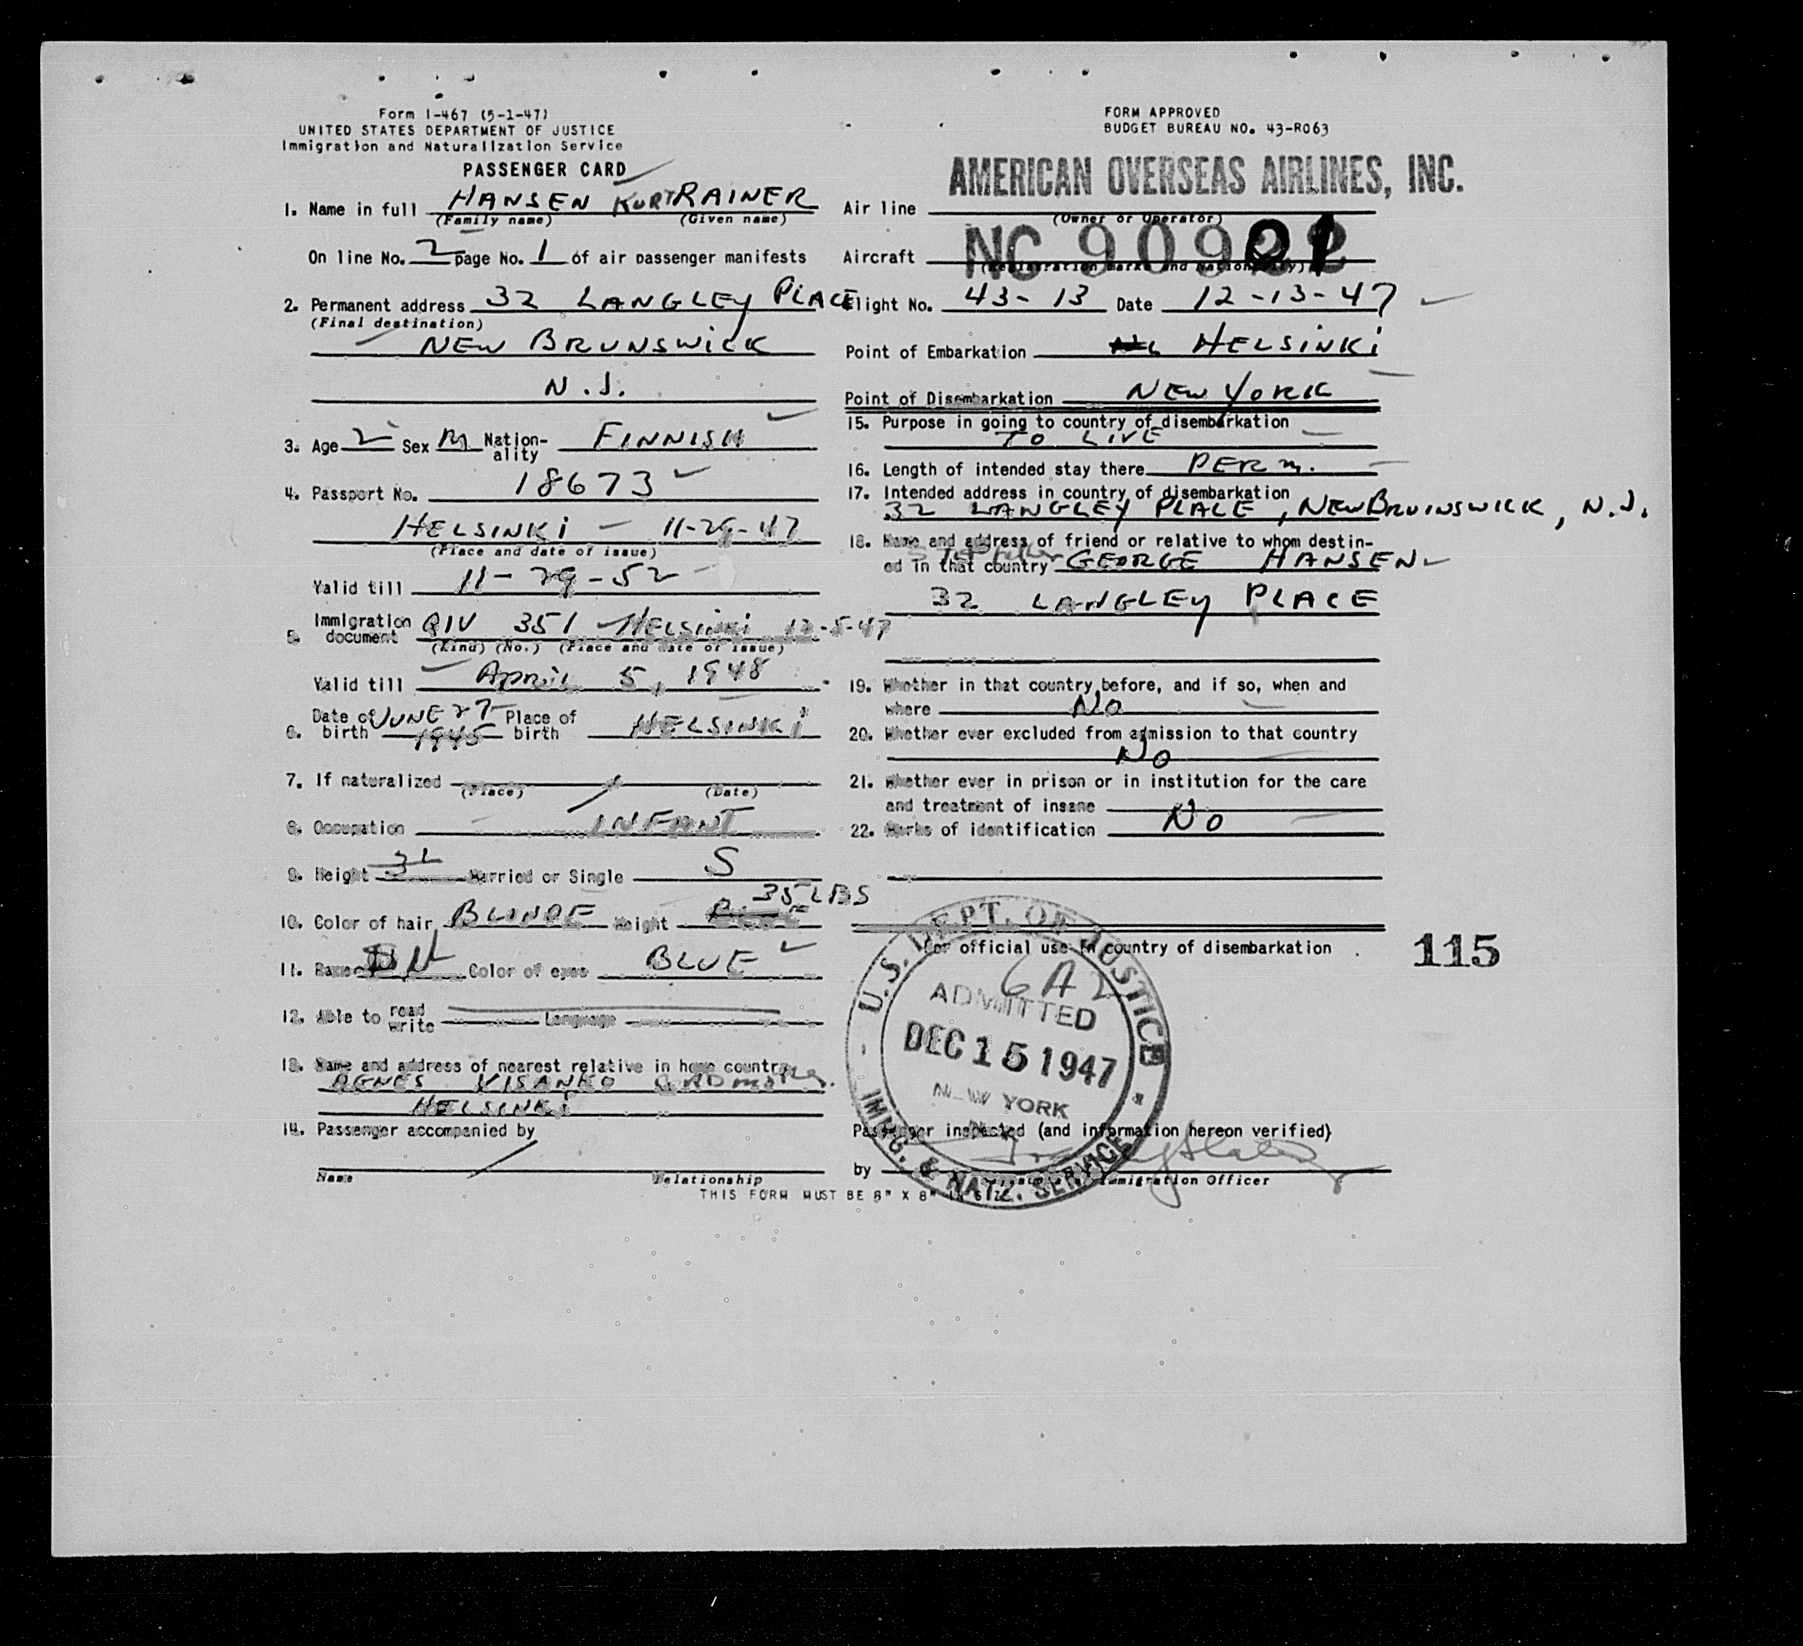 Form I-467 (5-1-47)
UNITED STATES DEPARTMENT OF JUSTICE
Immigration and Naturalization Service
PASSENGER CARD
1. Name in full HANSEN KURT RAINER
(Family name) (Given name)
On line No. 2 page No. 1 of air passenger manifests
2. Permanent address 32 LANGLEY PLACE
(Final destination)
NEW BRUNSWICK
N.J.
3. Age 2 Sex M Nation-ality FINNISH
4. Passport No. 18673
HELSINKI - 11-29-47
(Place and date of issue)
Valid till 11-29-52
5. Immigration document QIV 351 - HELSINKI 12-5-47
(Kind) (No.) (Place and date of issue)
Valid till April 5, 1948
6. Date of birth JUNE 27 1945 Place of birth HELSINKI
7. If naturalized
(Place) (Date)
8. Occupation INFANT
9. Height Married or Single S
35 LBS
10. Color of hair BLONDE Weight
11. Race Color of eyes BLUE
12. Able to read write Language
13. Name and address of nearest relative in home country
AGNES VISANKO GRDMOTHER.
HELSINKI
14. Passenger accompanied by
Name Relationship
THIS FORM MUST BE 8" X 8" IN SIZE
FORM APPROVED
BUDGET BUREAU NO. 43-R063
AMERICAN OVERSEAS AIRLINES, INC.
Air line
(Owner or Operator)
Aircraft NC 90901
(Registration marks and nationality)
Flight No. 43-13 Date 12-13-47
Point of Embarkation HELSINKI
Point of Disembarkation NEW YORK
15. Purpose in going to country of disembarkation
TO LIVE
16. Length of intended stay there PERM.
17. Intended address in country of disembarkation
32 LANGLEY PLACE, NEW BRUNSWICK, N.J.
18. Name and address of friend or relative to whom destin-
Stepfather
ed in that country GEORGE HANSEN
32 LANGLEY PLACE
19. Whether in that country before, and if so, when and
where No
20. Whether ever excluded from admission to that country
No
21. Whether ever in prison or in institution for the care
and treatment of insane
22. Marks of identification No
For official use in country of disembarkation
115
U.S. DEPT. OF JUSTICE
ADMITTED
DEC 15 1947
NEW YORK
IMMG. & NATZ. SERVICE
Passenger inspected (and information hereon verified)
by
Immigration Officer